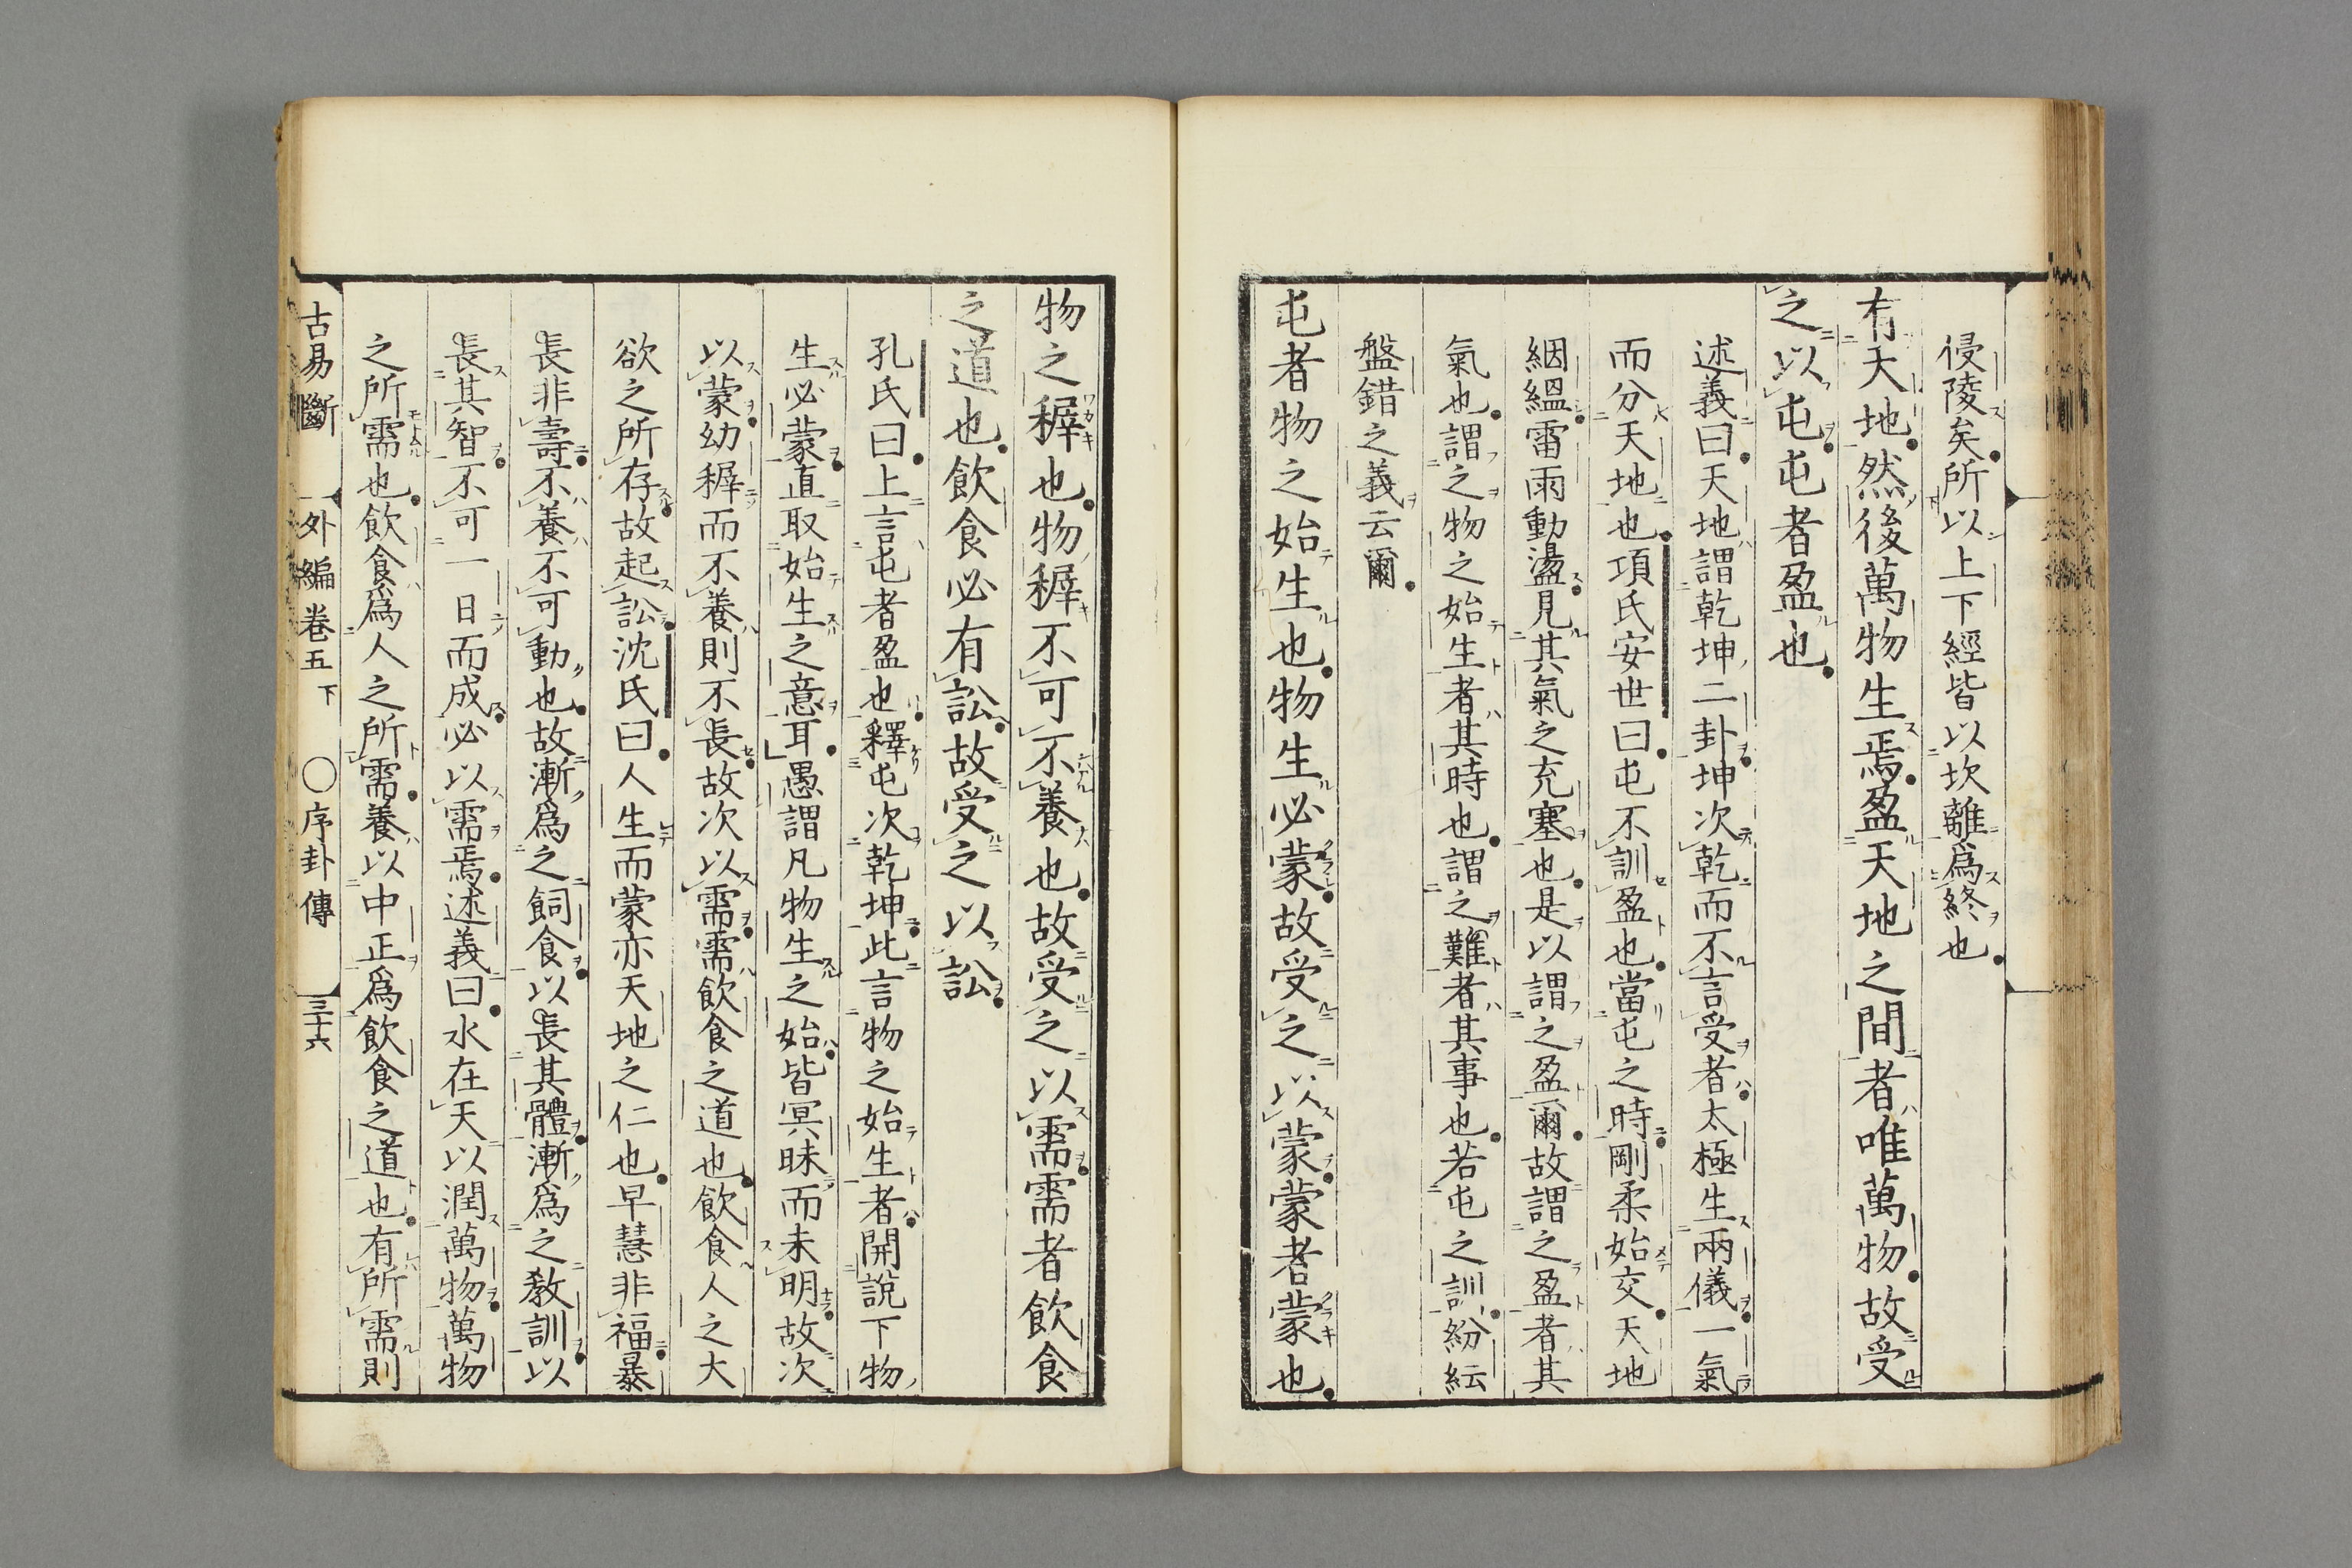 侵陵矣所以上下經皆以坎離爲終也
有天地然後萬物生焉盈天地之間者唯萬物故受
之以屯屯者盈也
述義曰天地謂乾坤二卦坤次乾而不言受者太極生兩儀一氣
而分天地也項氏安世曰屯不訓盈也當屯之時剛柔始交天地
絪縕雷雨動盪見其氣之充塞也是以謂之盈爾故謂之盈者其
氣也謂之物之始生者其時也謂之難者其事也若屯之訓紛紜
盤錯之義云爾
屯者物之始生也物生必蒙故受之以蒙蒙者蒙也
物之穉也物穉不可不養也故受之以需需者飲食
之道也飲食必有訟故受之以訟
孔氏曰上言屯者盈也釋屯次乾坤此言物之始生者開說下物
生必蒙直取始生之意耳愚謂凡物生之始皆冥昧而未明故次
以蒙幼穉而不養則不長故次以需需飲食之道也飲食人之大
欲之所存故起訟沈氏曰人生而蒙亦天地之仁也早慧非福暴
長非壽不養不可動也故漸爲之飼食以長其體漸爲之教訓以
長其智不可一日而成必以需焉述義曰水在天以潤萬物萬物
之所需也飲食爲人之所需養以中正爲飲食之道也有所需則
古易斷 外編卷五下 〇序卦傳 三十六